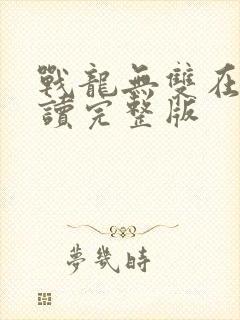 戰龍無雙在
讀完整版
夢幾時